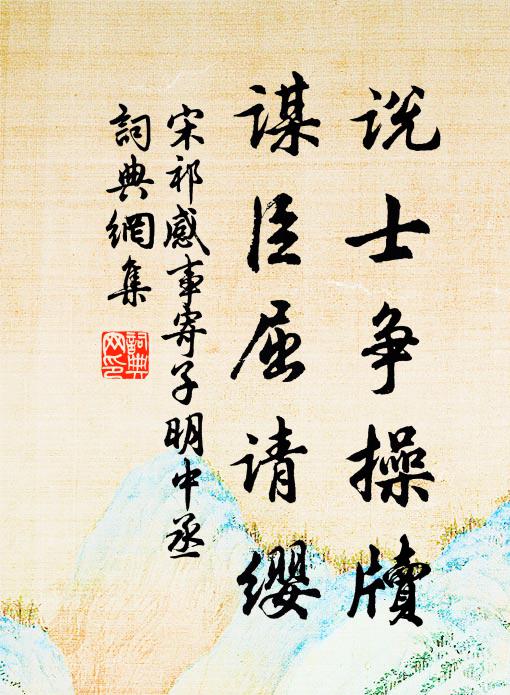 说士争操牍
谋臣屈请缨
宋祁感事寄子明中丞
詞典網集
詞典
网印